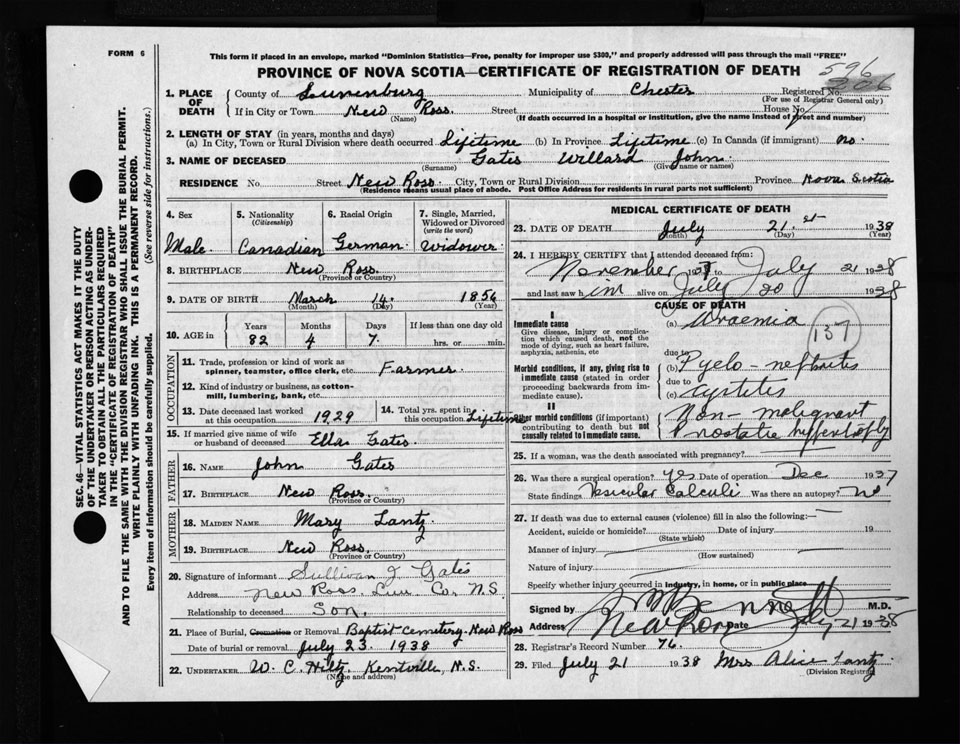 FORM 6
This form if placed in an envelope, marked "Dominion Statistics—Free, penalty for improper use $300," and properly addressed will pass through the mail "FREE"
PROVINCE OF NOVA SCOTIA—CERTIFICATE OF REGISTRATION OF DEATH
596
1. PLACE OF DEATH County of Lunenburg Municipality of Chester Registered No.
(For use of Registrar General only)
If in City or Town New Ross. Street House No.
(Name) (If death occurred in a hospital or institution, give the name instead of street and number)
2. LENGTH OF STAY (in years, months and days)
(a) In City, Town or Rural Division where death occurred Lifetime (b) In Province Lifetime (c) In Canada (if immigrant) no.
3. NAME OF DECEASED Gates Willard John.
(Surname) (Given name or names)
RESIDENCE No. Street New Ross. City, Town or Rural Division Province Nova Scotia
(Residence means usual place of abode. Post Office Address for residents in rural parts not sufficient)
SEC. 46—VITAL STATISTICS ACT MAKES IT THE DUTY
OF THE UNDERTAKER OR PERSON ACTING AS UNDER-
TAKER TO OBTAIN ALL THE PARTICULARS REQUIRED
IN THE "CERTIFICATE OF REGISTRATION OF DEATH"
AND TO FILE THE SAME WITH THE DIVISION REGISTRAR WHO SHALL ISSUE THE BURIAL PERMIT.
WRITE PLAINLY WITH UNFADING INK. THIS IS A PERMANENT RECORD.
Every item of information should be carefully supplied. (See reverse side for instructions.)
4. Sex 5. Nationality 6. Racial Origin 7. Single, Married, Widowed or Divorced
(Citizenship) (write the word)
Male. Canadian German. Widower.
8. BIRTHPLACE New Ross.
(Province or Country)
9. DATE OF BIRTH March 14. 1856
(Month) (Day) (Year)
10. AGE in Years Months Days If less than one day old
82 4 7. hrs. or min.
OCCUPATION
11. Trade, profession or kind of work as spinner, teamster, office clerk, etc. Farmer.
12. Kind of industry or business, as cotton-mill, lumbering, bank, etc.
13. Date deceased last worked at this occupation 1929 14. Total yrs. spent in this occupation Lifetime
15. If married give name of wife or husband of deceased Ella Gates
FATHER
16. NAME John Gates
17. BIRTHPLACE New Ross.
MOTHER
18. MAIDEN NAME Mary Lantz
19. BIRTHPLACE New Ross.
(Province or Country)
20. Signature of informant Sullivan J. Gates
Address New Ross. Lun. Co. N.S.
Relationship to deceased Son.
21. Place of Burial, Cremation or Removal Baptist Cemetery. New Ross
Date of burial or removal July 23. 1938
22. UNDERTAKER W. C. Hiltz. Kentville, N.S.
(Name and address)
MEDICAL CERTIFICATE OF DEATH
23. DATE OF DEATH July 21st 1938
(Month) (Day) (Year)
24. I HEREBY CERTIFY that I attended deceased from:
November 1937 to July 21 1938
and last saw him alive on July 20 1938
CAUSE OF DEATH
I
Immediate cause (a) Uraemia
Give disease, injury or complication which caused death, not the mode of dying, such as heart failure, asphyxia, asthenia, etc
137
due to
Morbid conditions, if any, giving rise to immediate cause (stated in order proceeding backwards from immediate cause). (b) Pyelo-nephritis
due to
(c) cystitis
II
Other morbid conditions (if important) contributing to death but not causally related to immediate cause. Non-malignant
Prostatic
25. If a woman, was the death associated with pregnancy?
26. Was there a surgical operation? yes Date of operation Dec 1937
State findings Vesicular Calculi Was there an autopsy? No
27. If death was due to external causes (violence) fill in also the following:—
Accident, suicide or homicide? Date of injury 19
(State which)
Manner of injury
(How sustained)
Nature of injury
Specify whether injury occurred in industry, in home, or in public place
Signed by Bennett M.D.
Address New Ross Date July 21 1938
28. Registrar's Record Number 76.
29. Filed July 21 1938 Mrs Alice Lantz
(Division Registrar)